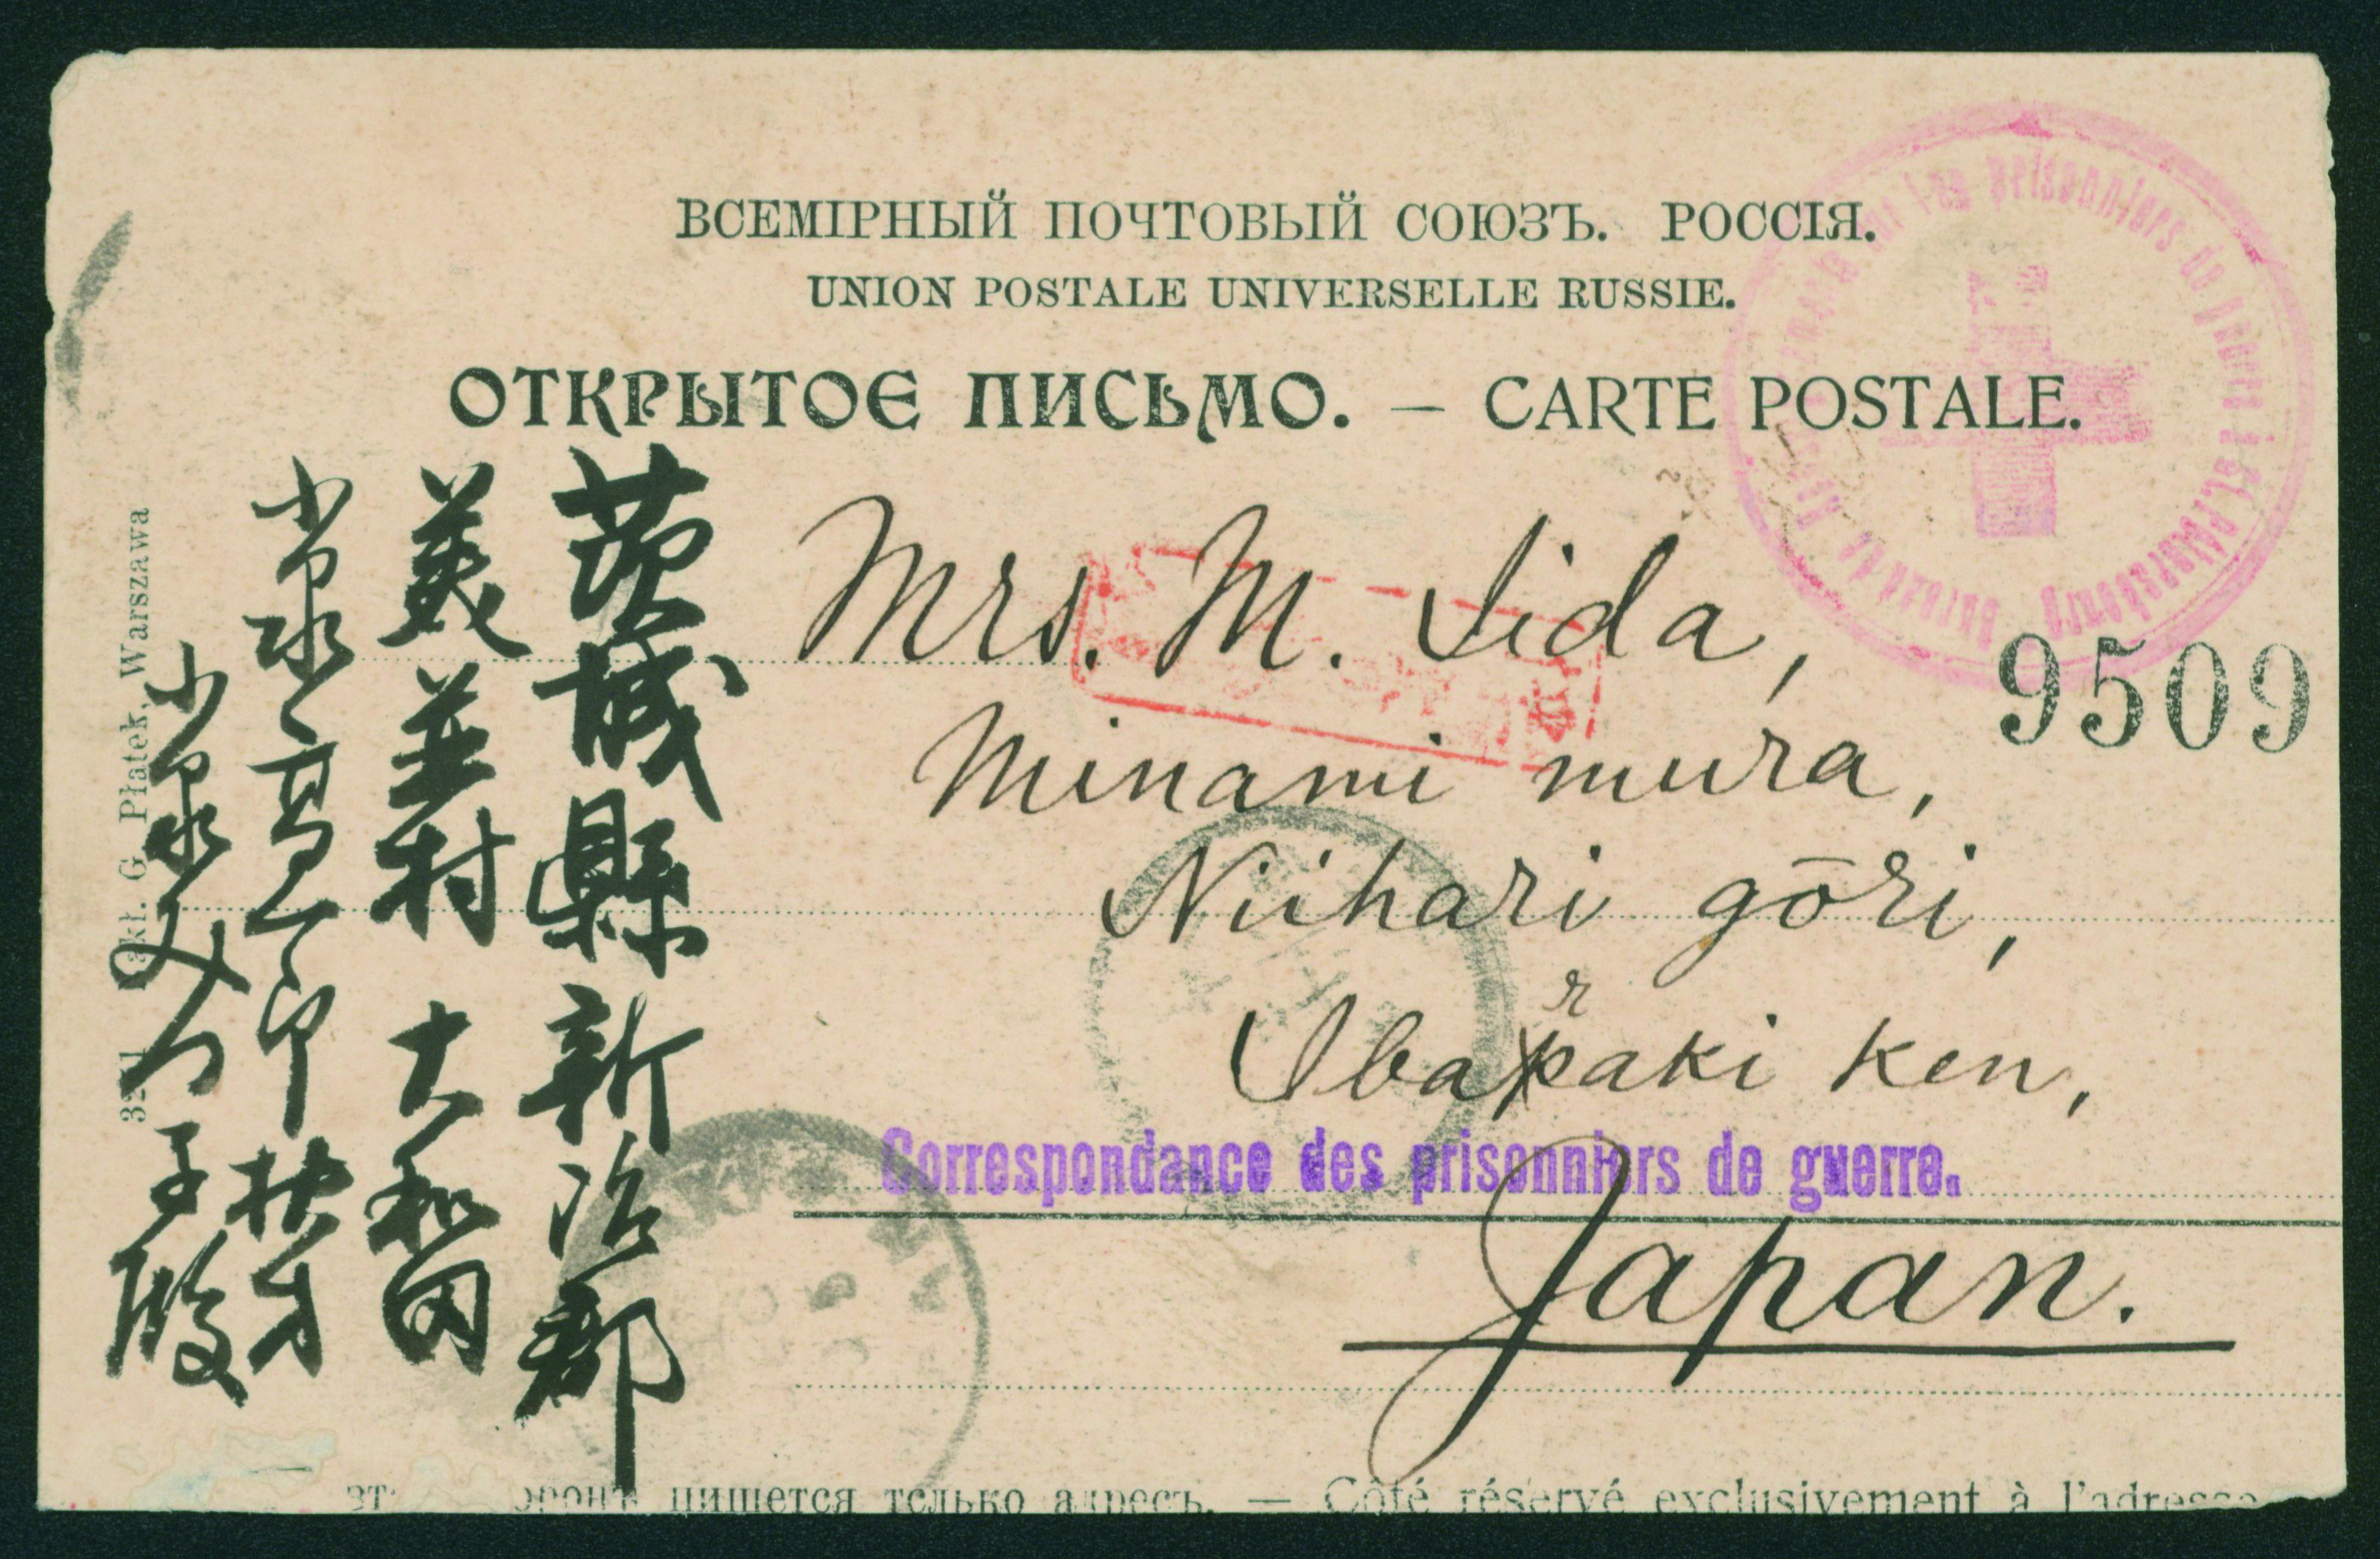 ВСЕМІРНЫЙ ПОЧТОВЫЙ СОЮЗЪ. РОССІЯ.
UNION POSTALE UNIVERSELLE RUSSIE.
ОТКРЫТОЕ ПИСЬМО. — CARTE POSTALE.
les prisonniers de guerre à St. Pétersbourg Bureau de
9509
Mrs. M. Iida,
Minami mura,
Niihari gōri,
Ibaraki Ken,
Correspondance des prisonniers de guerre.
Japan.
茨城縣新治郡
美並村 大和田
小泉
小泉 子殿
G. Płatek, Warszawa
пишется только адресъ. — Côté réservé exclusivement à l'adresse